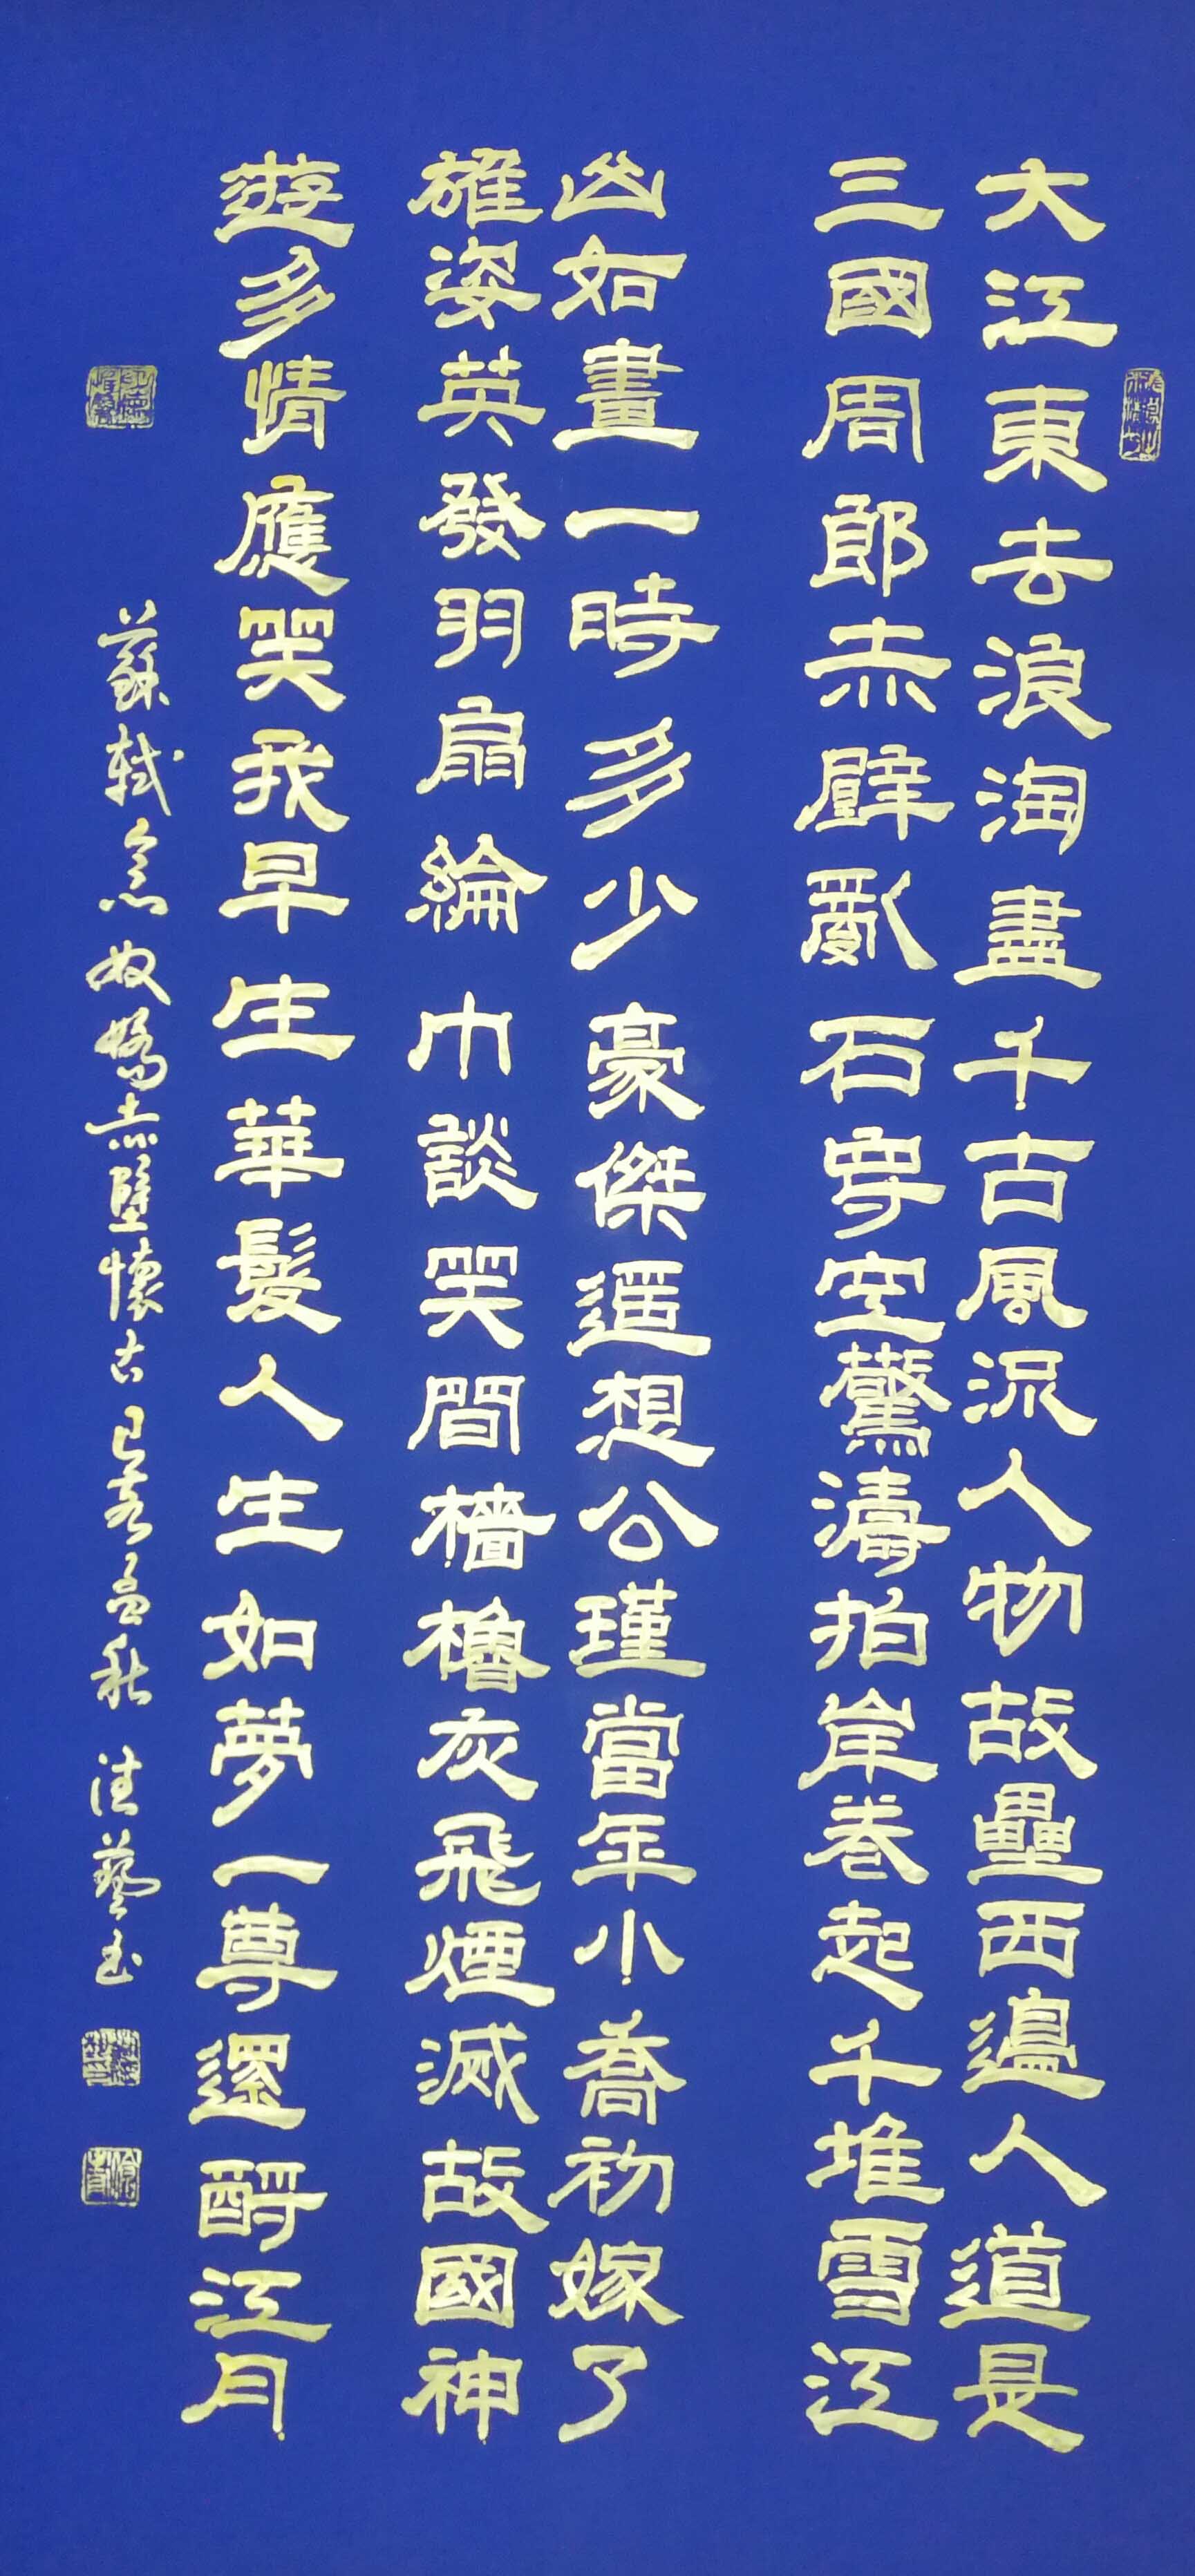 大江東去浪淘盡千古風流人物故壘西邊人道是
三國周郎赤壁亂石穿空驚濤拍岸卷起千堆雪江
山如畫一時多少豪傑遥想公瑾當年小喬初嫁了
雄姿英發羽扇綸巾談笑間檣櫓灰飛煙滅故國神
遊多情應笑我早生華髮人生如夢一尊還酹江月
蘇軾念奴嬌赤壁懷古己亥孟秋